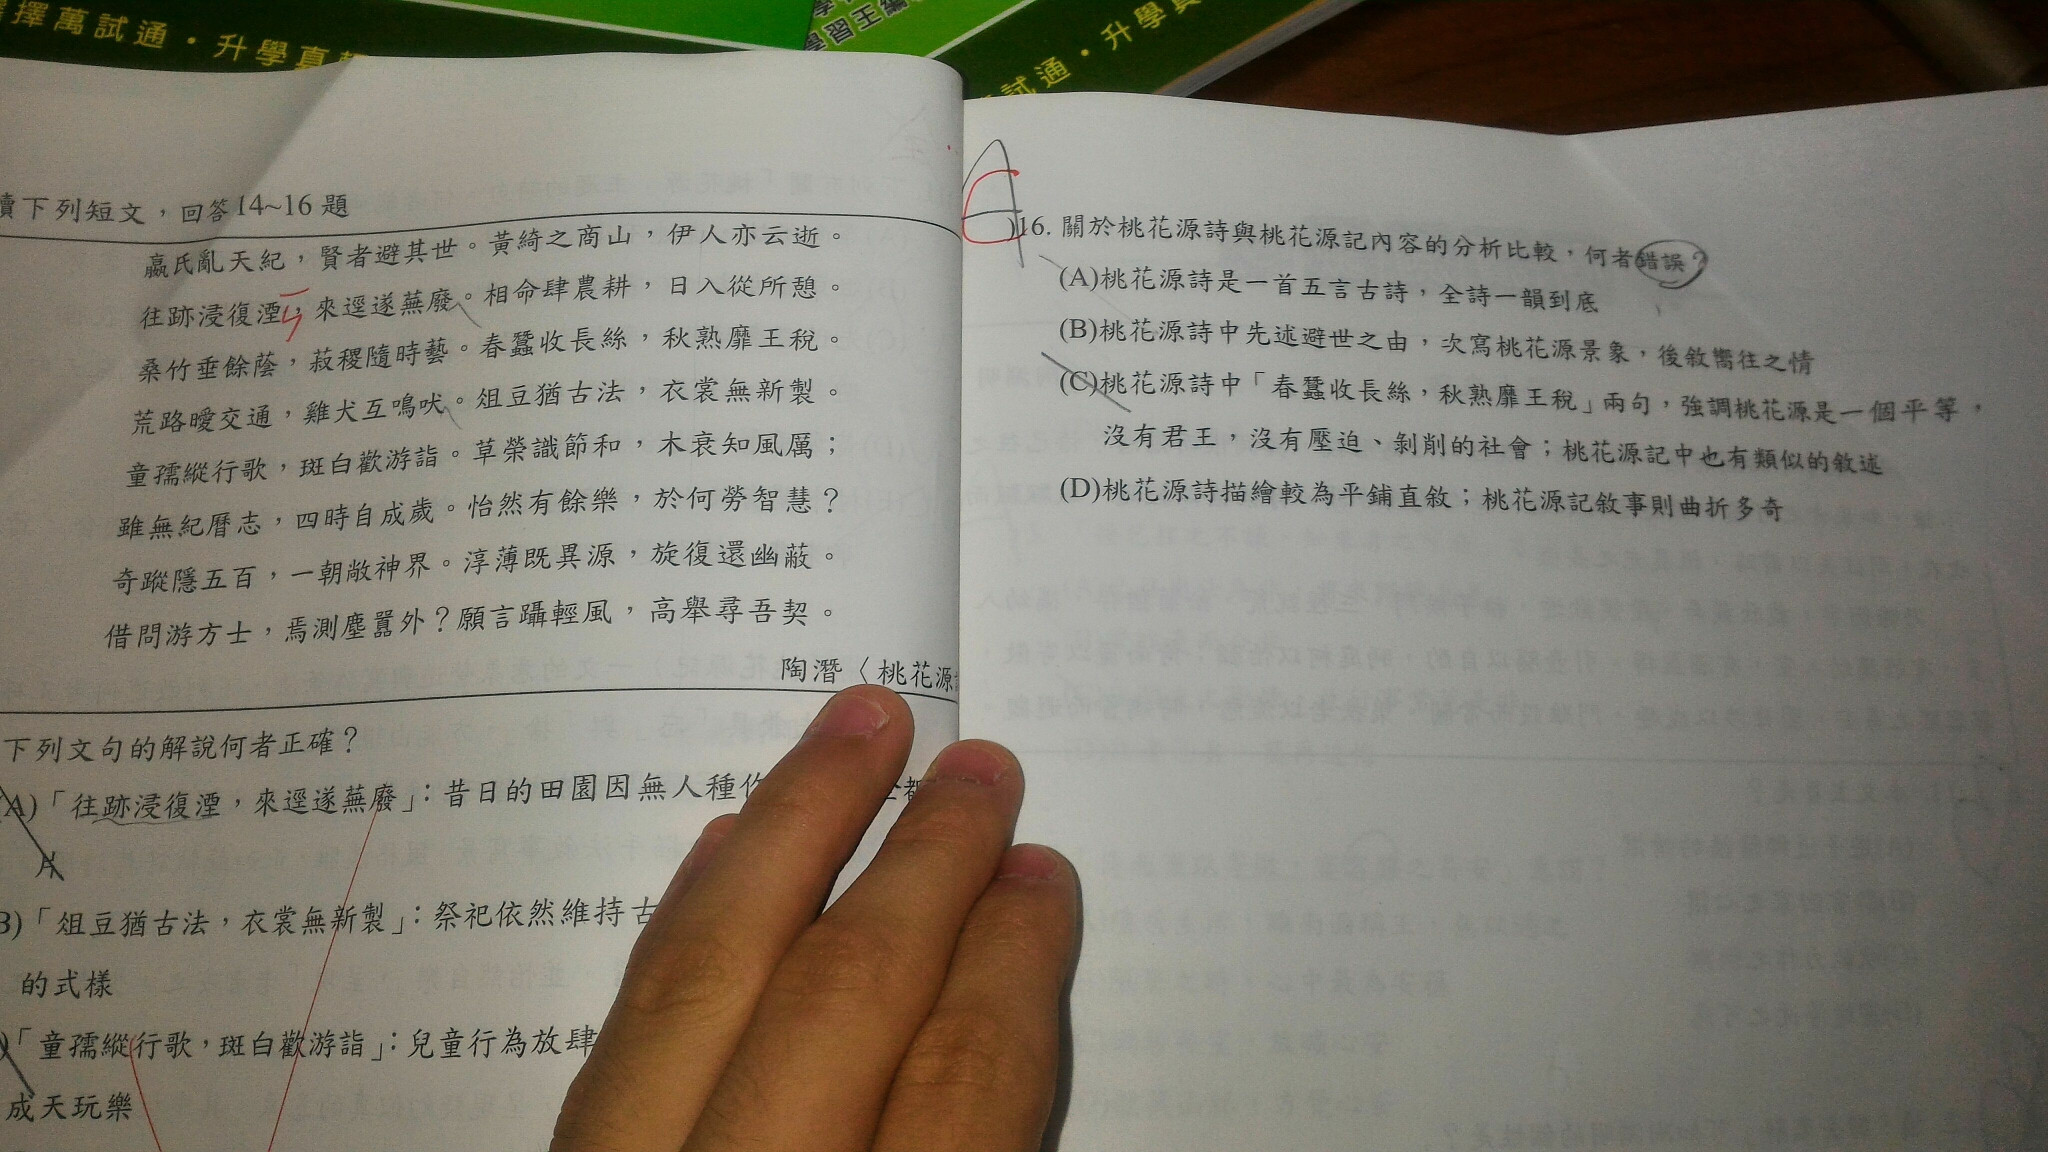 選擇萬試通・升學真
學習王編
試通・升學真
讀下列短文，回答14~16題
嬴氏亂天紀，賢者避其世。黃綺之商山，伊人亦云逝。
往跡浸復湮，來逕遂蕪廢。相命肆農耕，日入從所憩。
桑竹垂餘蔭，菽稷隨時藝。春蠶收長絲，秋熟靡王稅。
荒路曖交通，雞犬互鳴吠。俎豆猶古法，衣裳無新製。
童孺縱行歌，斑白歡游詣。草榮識節和，木衰知風厲；
雖無紀曆志，四時自成歲。怡然有餘樂，於何勞智慧？
奇蹤隱五百，一朝敞神界。淳薄既異源，旋復還幽蔽。
借問游方士，焉測塵囂外？願言躡輕風，高舉尋吾契。
陶潛〈桃花源
下列文句的解說何者正確？
(A)「往跡浸復湮，來逕遂蕪廢」：昔日的田園因無人種作
片
B)「俎豆猶古法，衣裳無新製」：祭祀依然維持古
的式樣
)「童孺縱行歌，斑白歡游詣」：兒童行為放肆
成天玩樂
)16. 關於桃花源詩與桃花源記內容的分析比較，何者錯誤？
(A)桃花源詩是一首五言古詩，全詩一韻到底
(B)桃花源詩中先述避世之由，次寫桃花源景象，後敘嚮往之情
(C)桃花源詩中「春蠶收長絲，秋熟靡王稅」兩句，強調桃花源是一個平等，
沒有君王，沒有壓迫、剝削的社會；桃花源記中也有類似的敘述
(D)桃花源詩描繪較為平鋪直敘；桃花源記敘事則曲折多奇